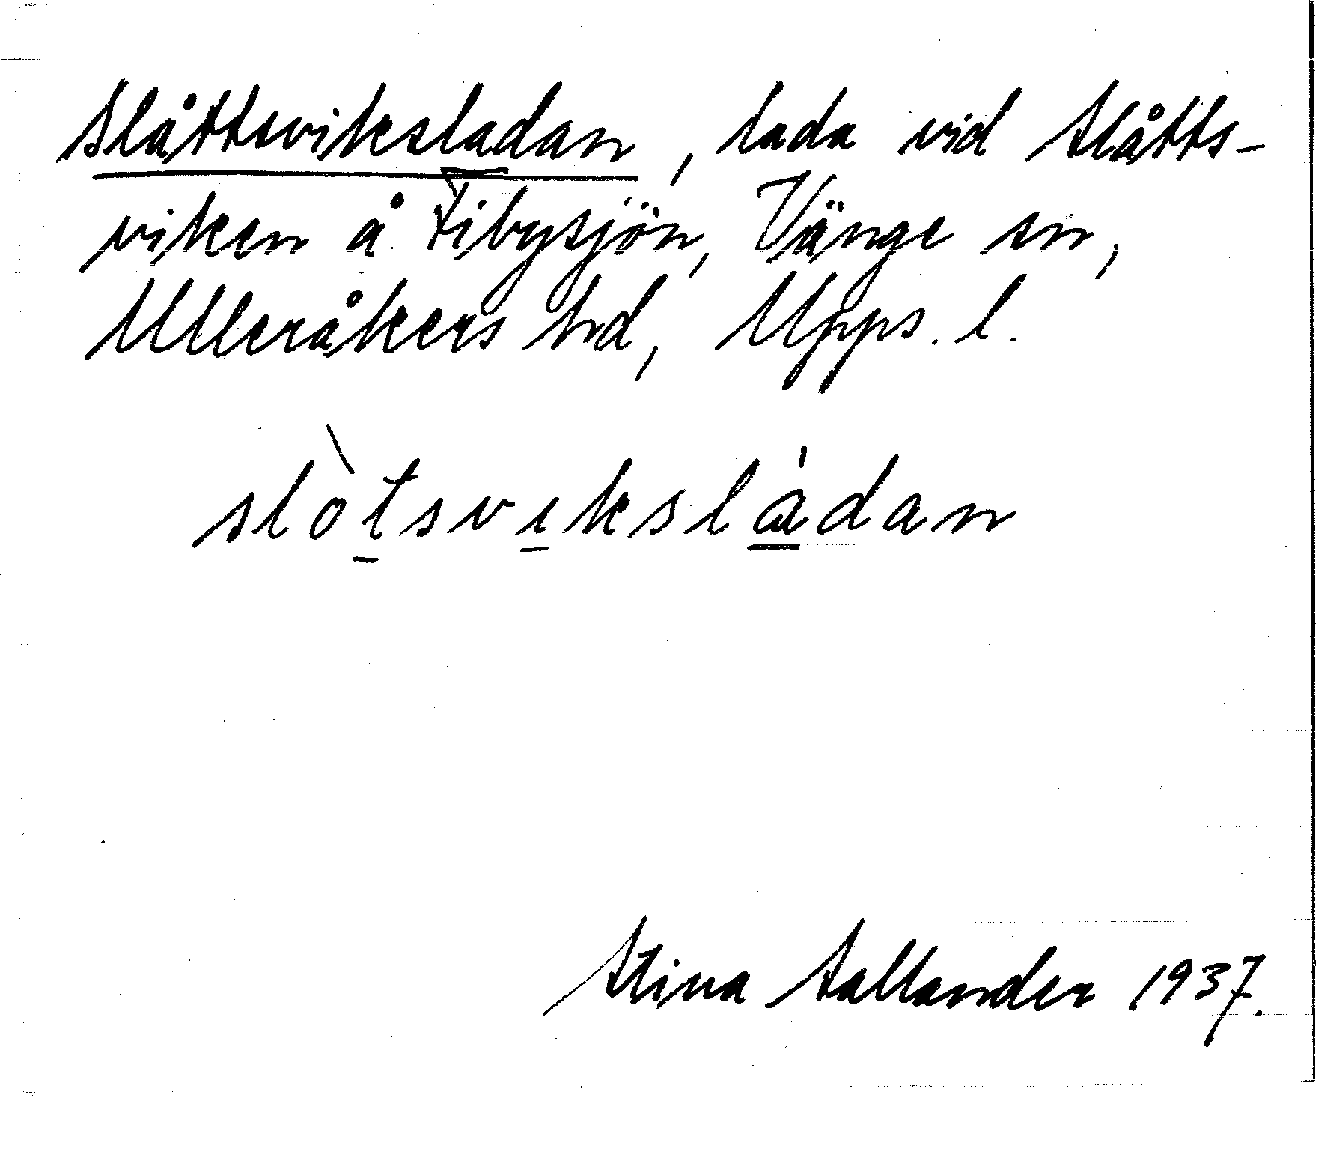 Slåttsviksladan, lada vid Slåtts-
viken å Fibysjön, Vänge sn,
Ulleråkers hd, Upps. l.
slòtsvıkslàdan
Stina Sallander 1937.